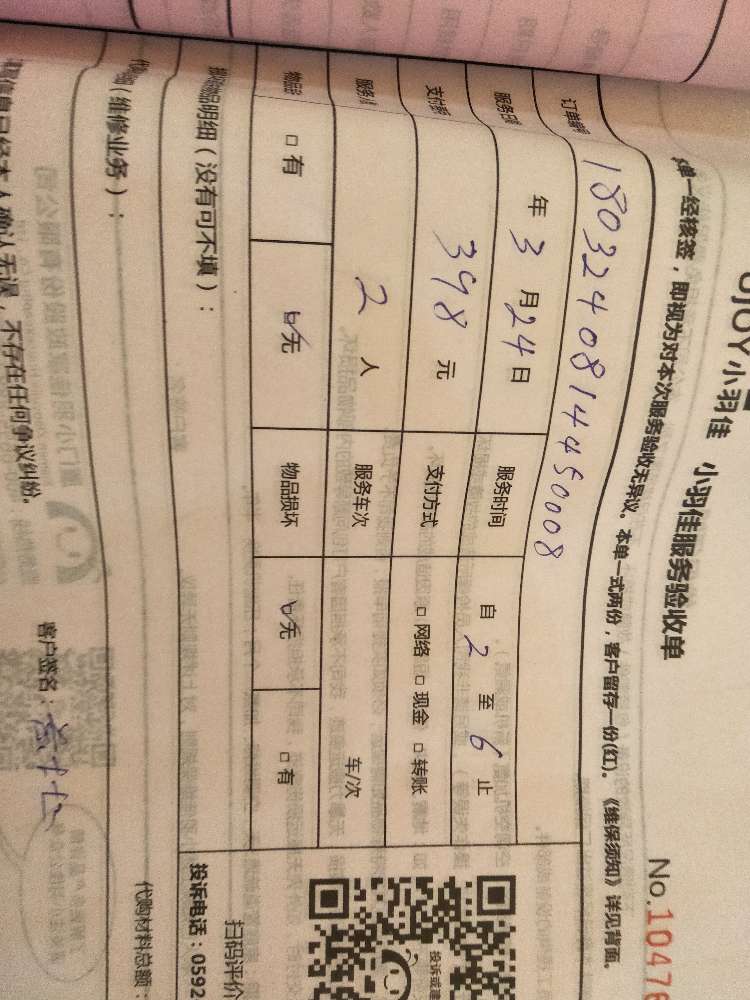 小羽佳 小羽佳服务验收单
No.10476
单一经核签，即视为对本次服务验收无异议。本单一式两份，客户留存一份(红)。《维保须知》详见背面。
订单编号 1803240814450008
服务日期 年 3 月 24 日 服务时间 自 2 至 6 止
支付 398 元 支付方式 □ 网络 □ 现金 □ 转账
服务 2 人 服务车次 车/次
物品 □ 有 ☑ 无 物品损坏 ☑ 无 □ 有
品明细（没有可不填）：
扫码评价
投诉电话：0592
投诉或
（维修业务）：
代购材料总额：
信息已经本人确认无误，不存在任何争议纠纷。
客户签名：